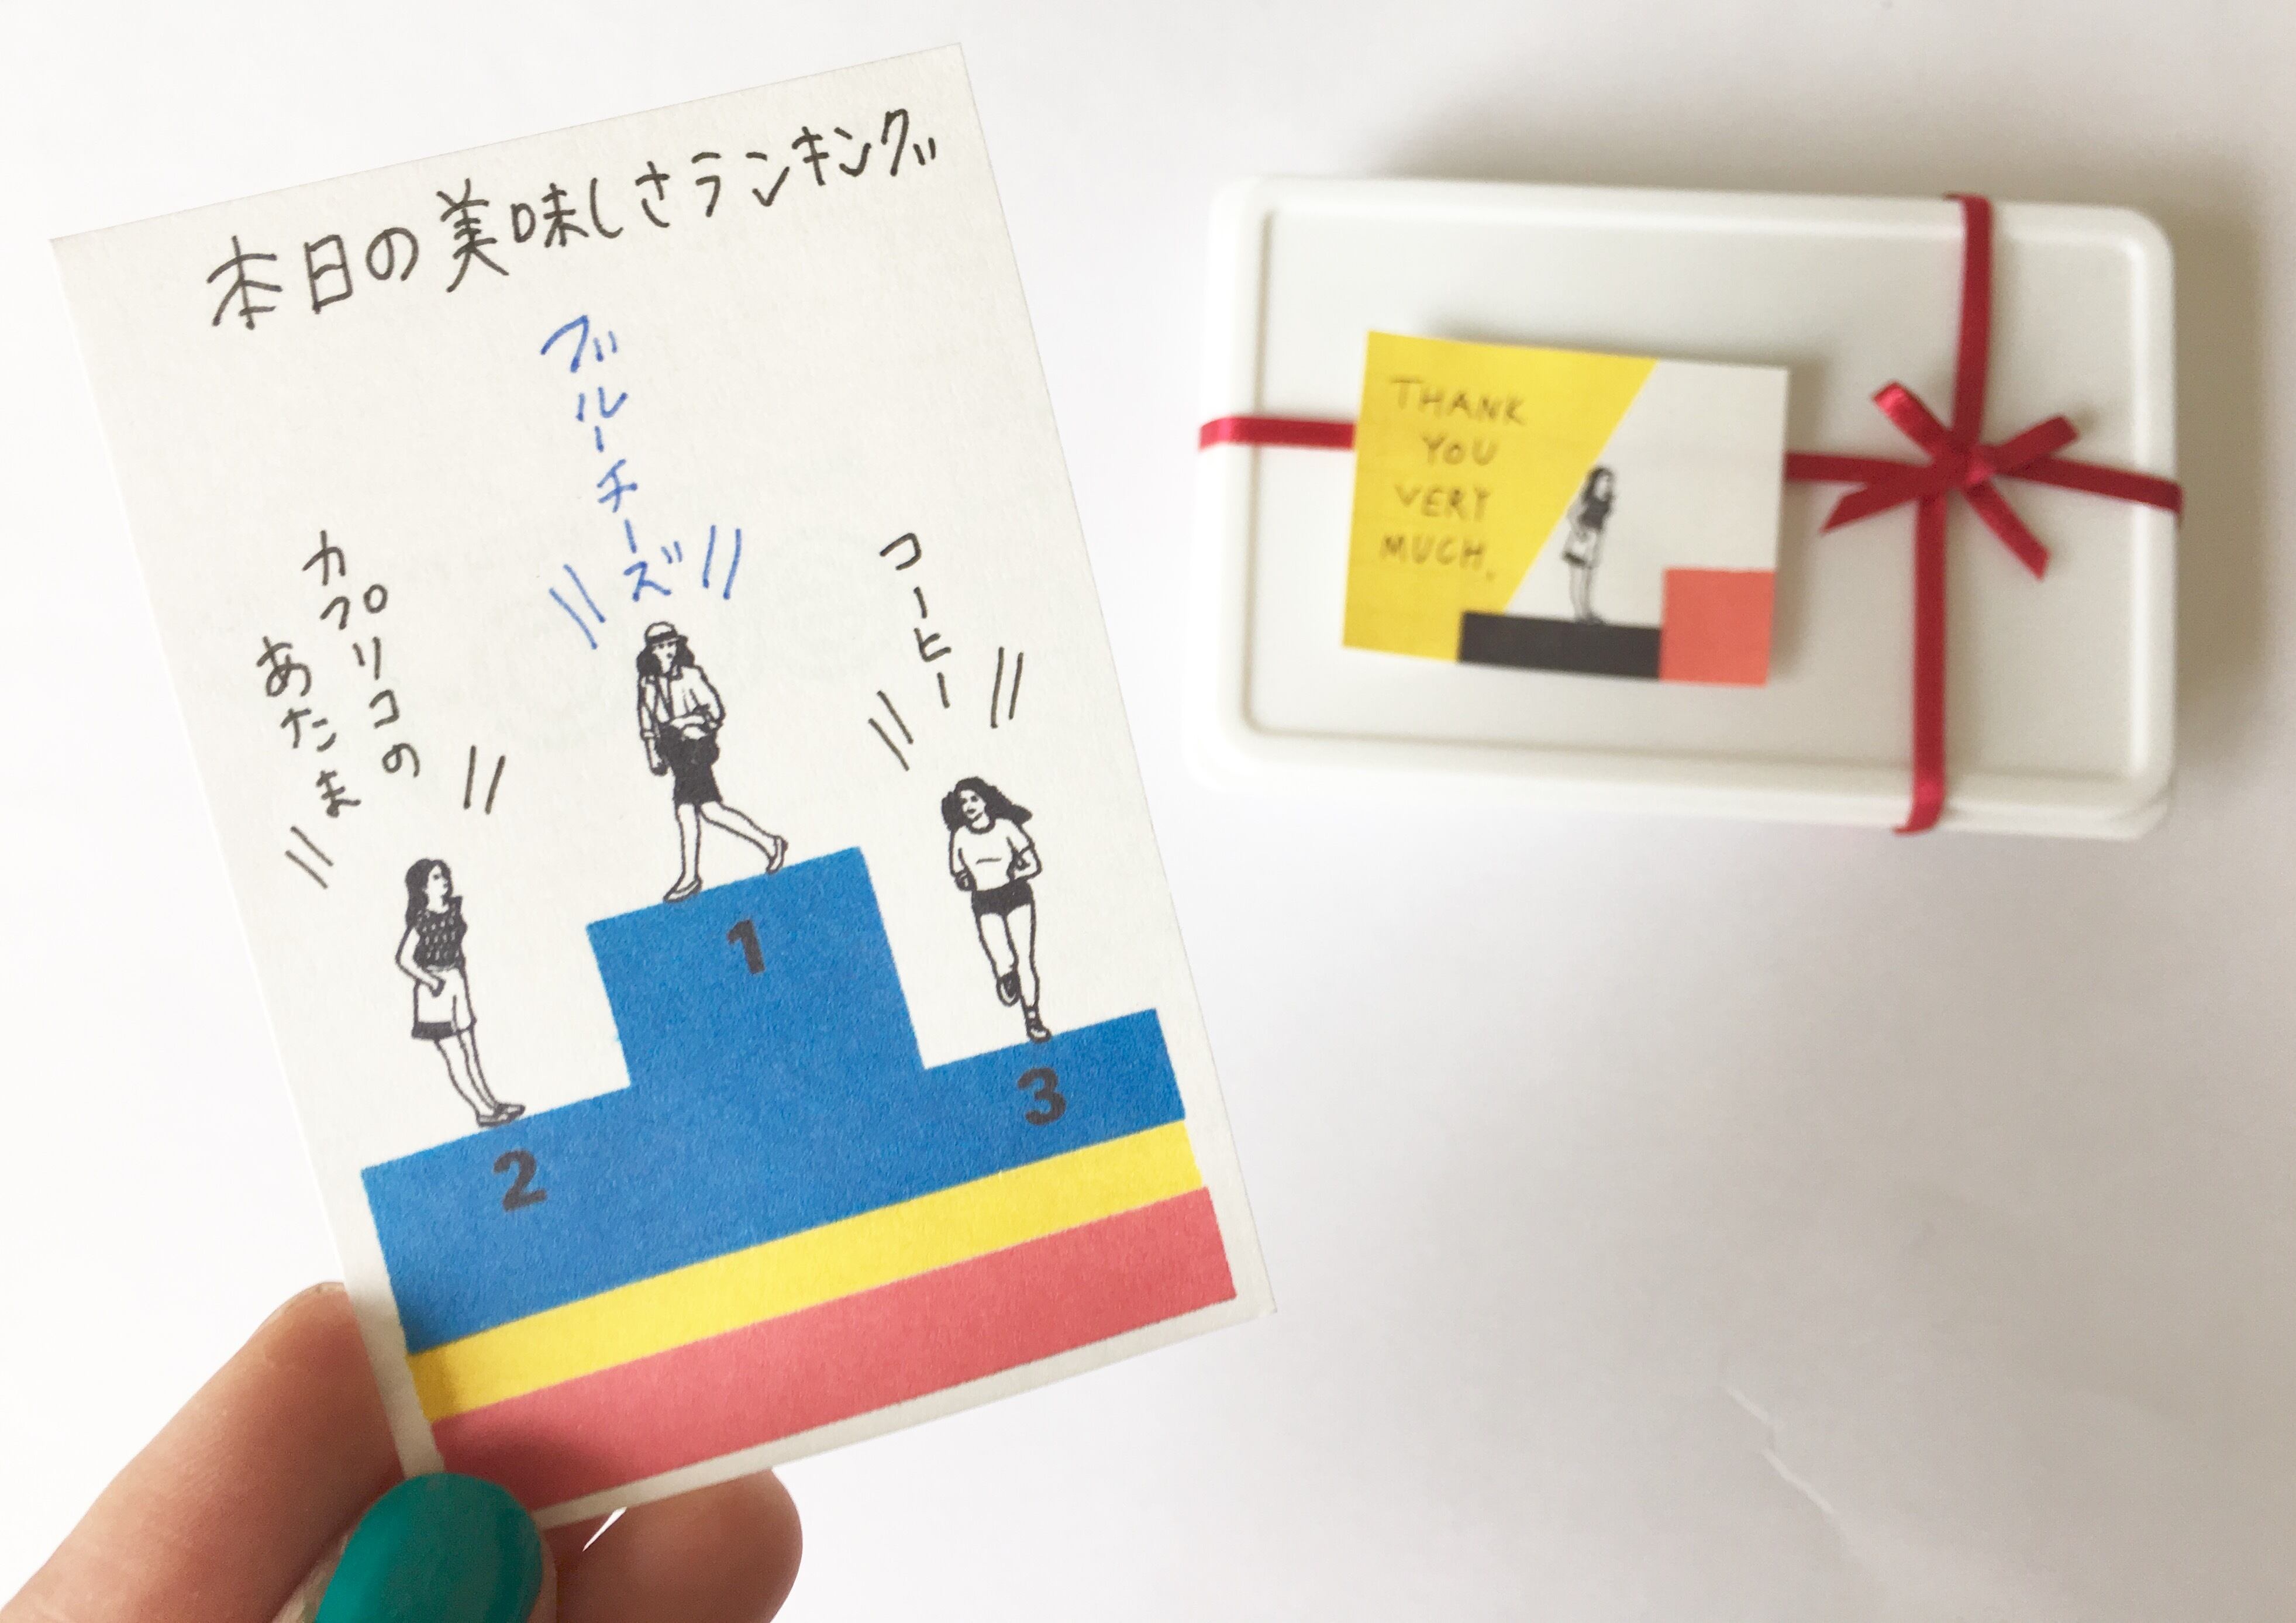 本日の美味しさランキング
ブルーチーズ
カプリコの
あたま
コーヒー
1
2
3
THANK
YOU
VERY
MUCH.